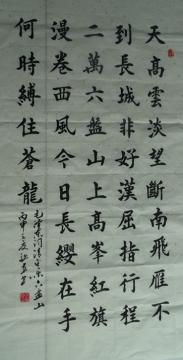 天高雲淡望斷南飛雁不
到長城非好漢屈指行程
二萬六盤山上高峯紅旗
漫卷西風今日長纓在手
何時縛住蒼龍
毛澤東詞清平樂六盤山
丙申之夏